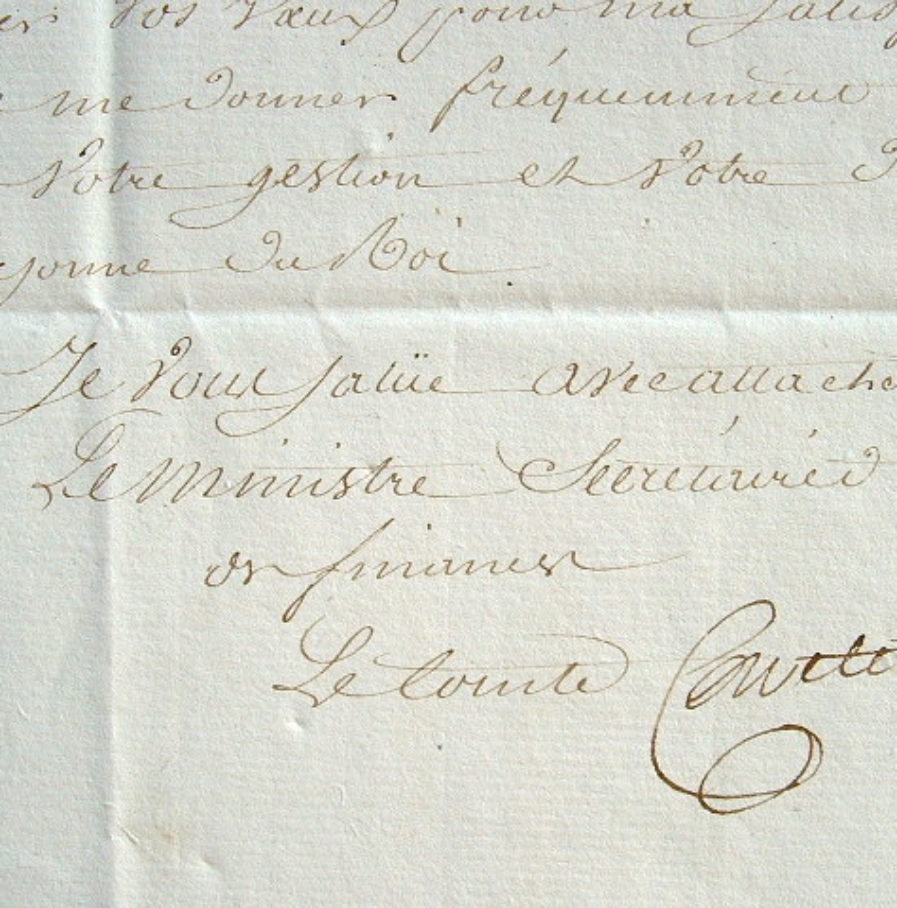 vos vœux pour ma satis
me donner fréquemment
Votre gestion et Votre
du Roi
Je Vous salüe avec attache
Le Ministre Secrétaire d
des finances
Le Comte Corvetto